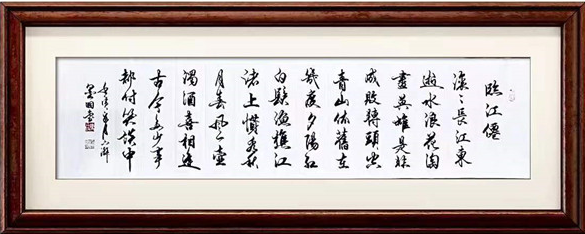 臨江僊
滚〻長江東
逝水浪花淘
盡英雄是非
成敗轉頭空
青山依舊在
幾度夕陽紅
白髮漁樵江
渚上慣看秋
月春風一壺
濁酒喜相逢
古今多少事
都付笑談中